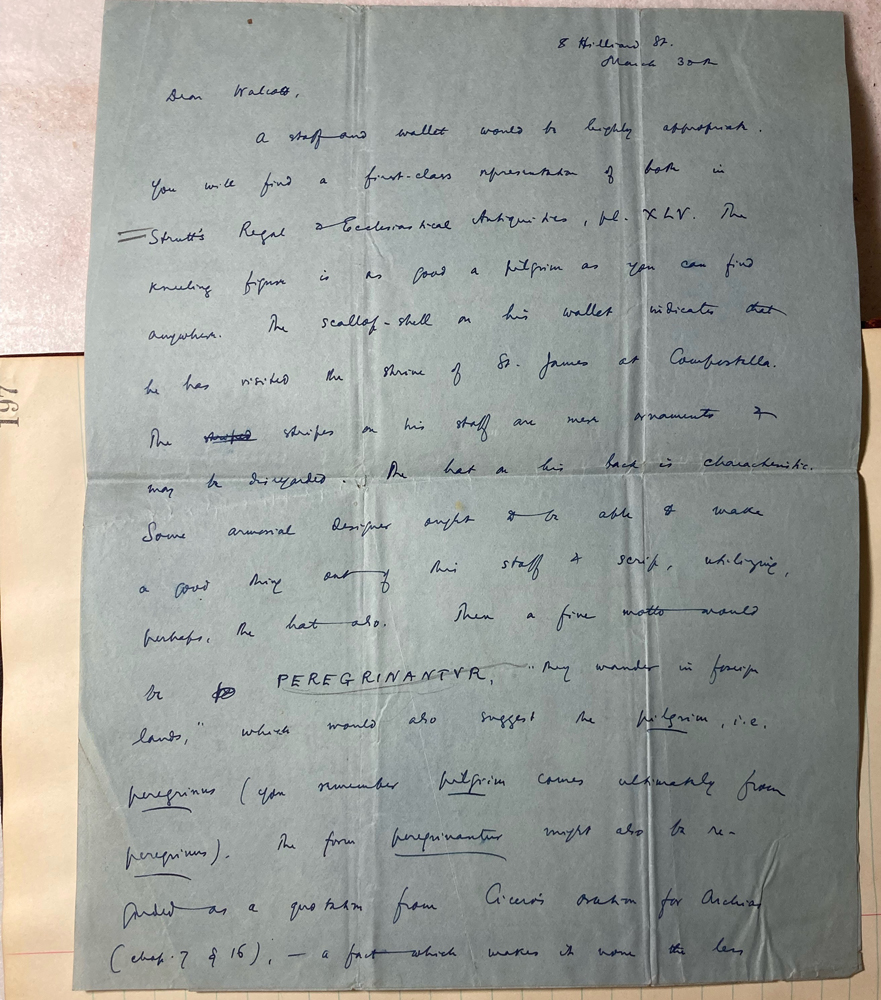 8 Hilliard St.
March 30th
Dear Walcott,
A staff and wallet would be highly appropriate.
You will find a first-class representation of both in
Strutt's Regal & Ecclesiastical Antiquities, pl. XLV. The
kneeling figure is as good a pilgrim as you can find
anywhere. The scallop-shell on his wallet indicates that
he has visited the shrine of St. James at Compostella.
The striped stripes on his staff are mere ornaments &
may be disregarded. The hat on his back is characteristic.
Some armorial designer ought to be able to make
a good thing out of this staff & scrip, utilizing,
perhaps, the hat also. Then a fine motto would
be PEREGRINANTVR, "they wander in foreign
lands," which would also suggest the pilgrim, i.e.
peregrinus (you remember pilgrim comes ultimately from
peregrinus). The form peregrinantur might also be re-
garded as a quotation from Cicero's oration for Archias
(chap. 7 § 16), — a fact which makes it none the less
197